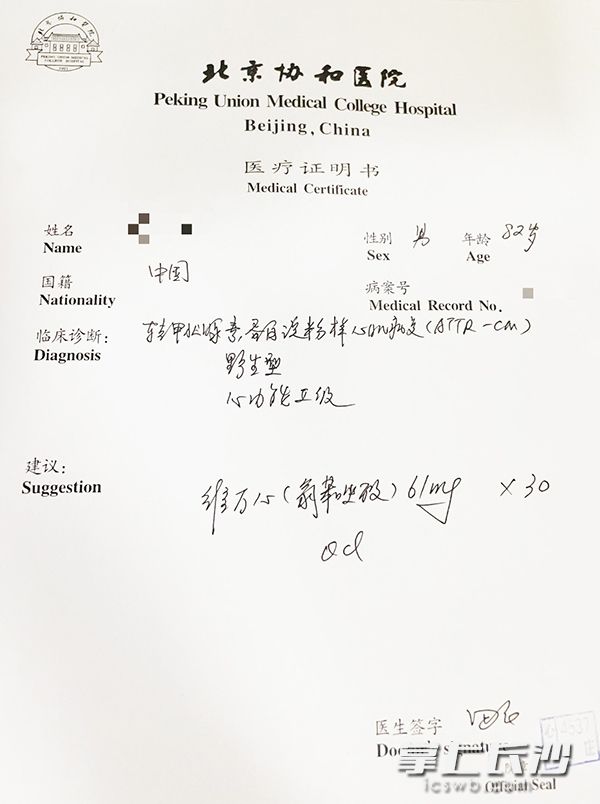 北京协和医院
PEKING UNION MEDICAL
COLLEGE HOSPITAL
1921
北京协和医院
Peking Union Medical College Hospital
Beijing, China
医疗证明书
Medical Certificate
姓名
Name
性别 男 年龄 82岁
Sex Age
国籍 中国
Nationality
病案号
Medical Record No.
临床诊断: 转甲状腺素蛋白淀粉样心肌病变(ATTR-CM)
Diagnosis
野生型
心功能 级
建议:
Suggestion
维万心(氯苯唑酸) 61mg ×30
qd
医生签字
Doctor's signature
4537
掌上长沙
icswb.com
Official Seal